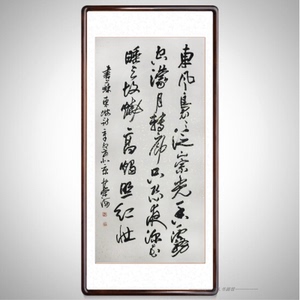 東風裊〻泛崇光香霧
空濛月轉廊只恐夜深花
睡去故燒高燭照紅妝
書蘇東坡詩